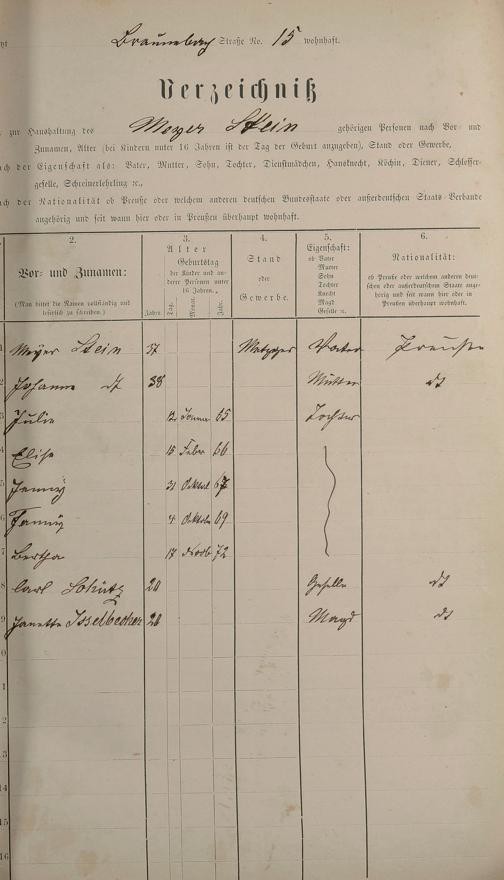 Braunebach Straße No. 15 wohnhaft.
Verzeichniß
zur Haushaltung des Meyer Stein gehörigen Personen nach Vor- und
Zunamen, Alter (bei Kindern unter 16 Jahren ist der Tag der Geburt anzugeben), Stand oder Gewerbe,
nach der Eigenschaft als: Vater, Mutter, Sohn, Tochter, Dienstmädchen, Hausknecht, Köchin, Diener, Schlosser-
geselle, Schreinerlehrling ꝛc.,
nach der Nationalität ob Preuße oder welchem anderen deutschen Bundesstaate oder außerdeutschen Staats-Verbande
angehörig und seit wann hier oder in Preußen überhaupt wohnhaft.
2. 3. 4. 5. 6.
Vor- und Zunamen:
(Man bittet die Namen vollständig und leserlich zu schreiben.)
Alter
Jahre.
Geburtstag
der Kinder und an-
derer Personen unter
16 Jahren.
Tag. Monat. Jahr.
Stand
oder
Gewerbe.
Eigenschaft:
ob Vater
Mutter
Sohn
Tochter
Knecht
Magd
Geselle ꝛc.
Nationalität:
ob Preuße oder welchem anderen deut-
schen oder außerdeutschen Staate ange-
hörig und seit wann hier oder in
Preußen überhaupt wohnhaft.
1 Meyer Stein 37 Metzger Vater Preuße
2 Johanna dt 38 Mutter dt
3 Julie 12 Januar 65 Tochter
4 Elise 15 Febr 66
5 Jenny 31 Oktob 67
6 Fanny 4 Oktobr 69
7 Bertha 17 Novb 72
8 Carl Schütz 20 Geselle dt
9 Janette Isselbecher 20 Magd dt
0
1
2
3
4
5
16